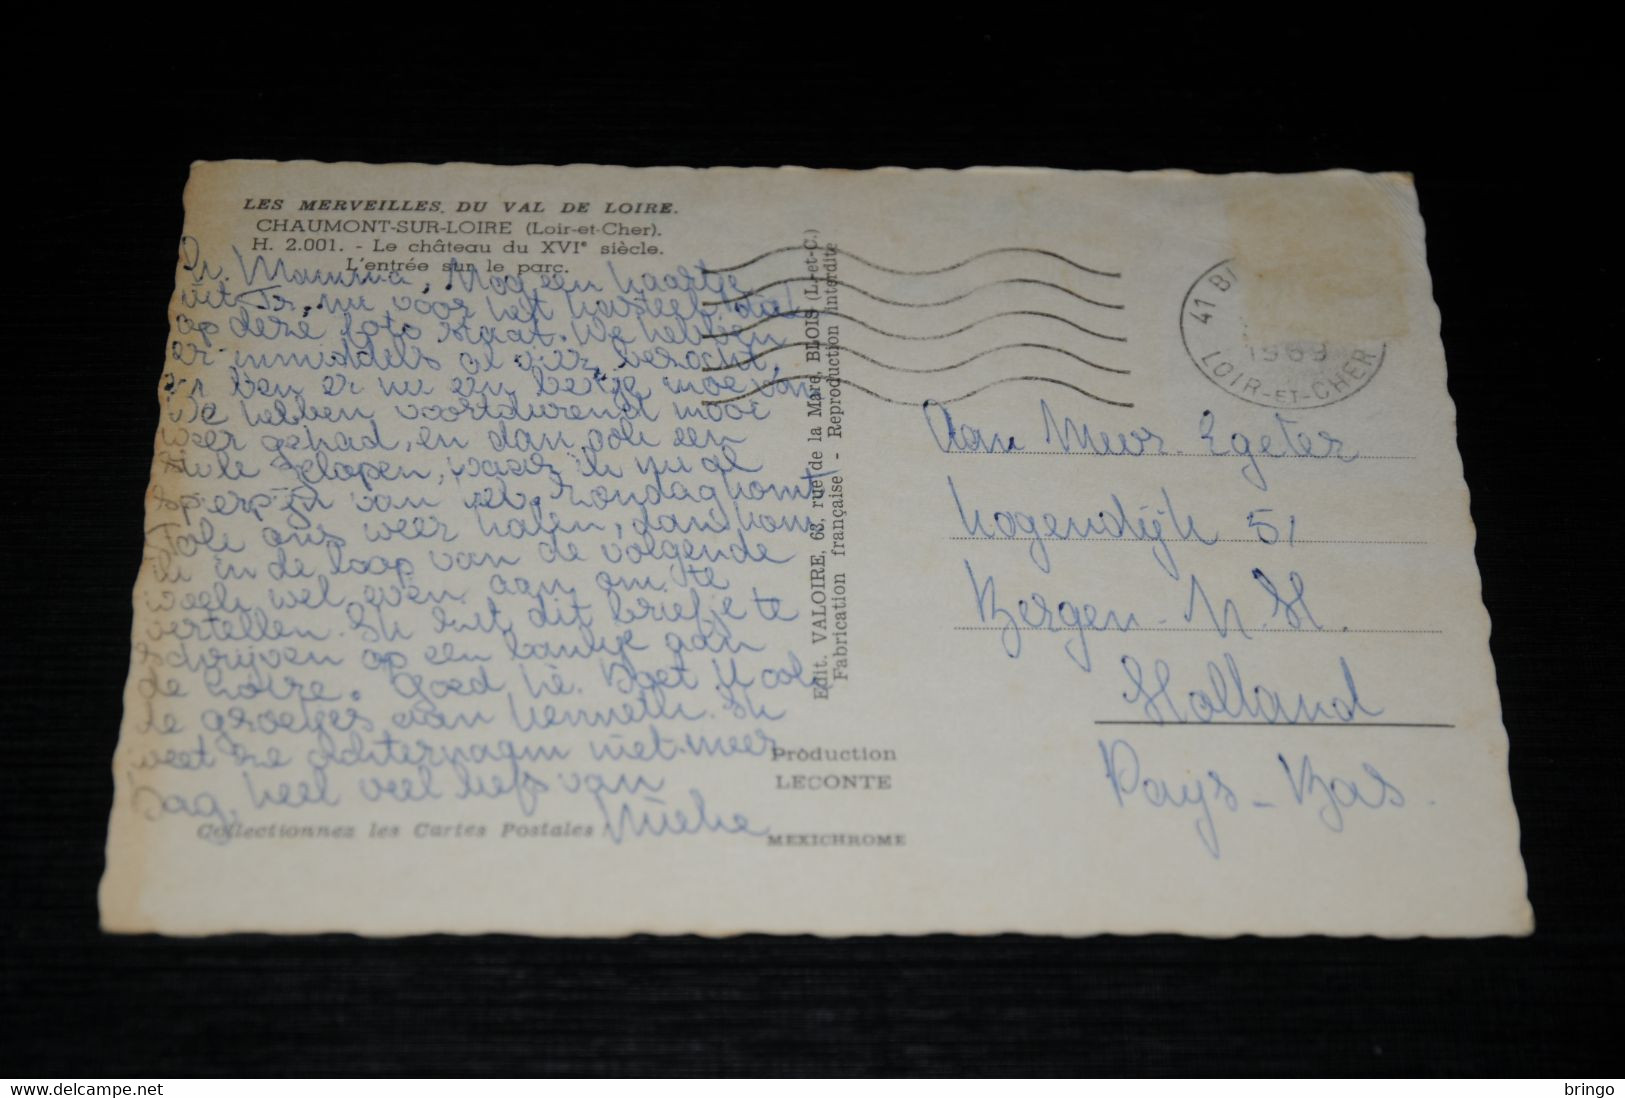 LES MERVEILLES DU VAL DE LOIRE.
CHAUMONT-SUR-LOIRE (Loir-et-Cher).
H. 2.001. - Le château du XVIe siècle.
L'entrée sur le parc.
Mamma, Nog een kaartje
uit Fr, nu voor het kasteel dat
op deze foto staat. We hebben
er inmiddels al bezocht,
ben er nu een beetje moe van
We hebben voortdurend mooi
weer gehad, en dan ook een
gelopen, waar ik nu al
van heb. Zondag komt
ons weer halen, dan kom
ik in de loop van de volgende
week wel even aan om te
vertellen. Ik zit dit briefje te
schrijven op een bankje aan
de Loire. Goed hè. Doet U ook
de groetjes aan Kenneth. Ik
weet zijn achternaam niet meer
Dag, heel veel liefs van
Mieke
Collectionnez les Cartes Postales
Edit. VALOIRE, 63, rue de la Mare, BLOIS (L.-et-C.)
Fabrication française - Reproduction interdite
Production
LECONTE
MEXICHROME
41
1969
LOIR-ET-CHER
Aan Mevr. Egeter
Hogendijk 51
Bergen - N.H.
Holland
Pays-Bas.
www.delcampe.net
bringo